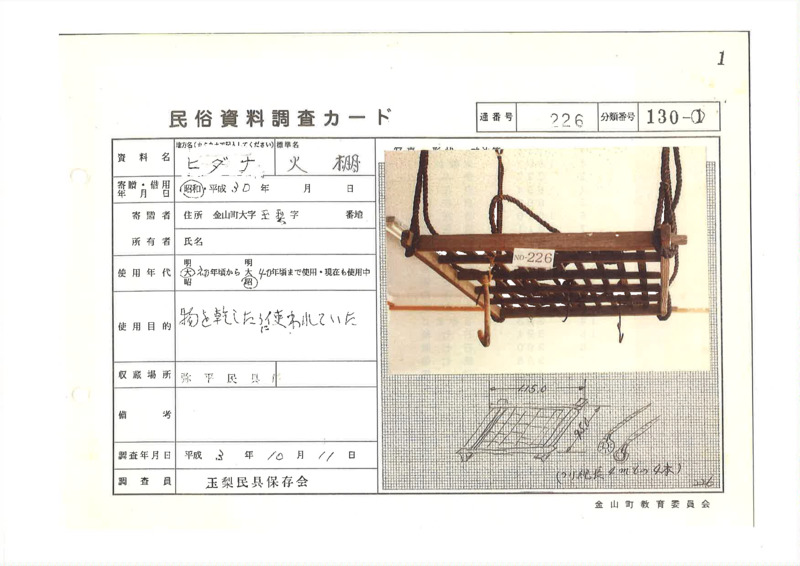 1
民俗資料調査カード
通番号 226 分類番号 130-①
資料名 地方名(かたかなで記入してください) 標準名
ヒダナ 火棚
寄贈・借用年月日 昭和・平成 30年 月 日
寄贈者 住所 金山町大字玉梨字 番地
所有者 氏名
使用年代 明 大 昭 初年頃から 明 大 昭 40年頃まで使用・現在も使用中
使用目的 物を乾したりに使われていた
収蔵場所 弥平民具
備考
調査年月日 平成 3年 10月 11日
調査員 玉梨民具保存会
NO-226
115.0
(つり縄長4mもの4本)
226
金山町教育委員会